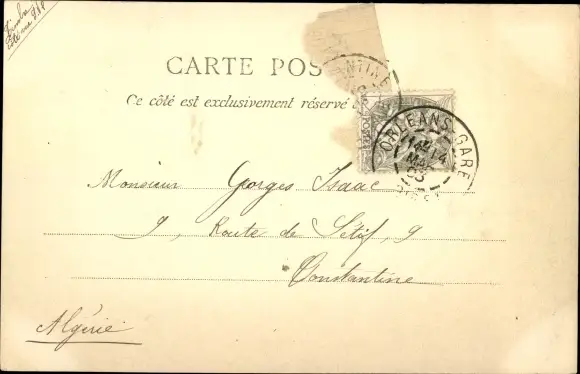 CARTE POS
Ce côté est exclusivement réservé
NTINE
ORLEANS-GARE
14
03
Monsieur Gorges Isaac
9, Route de Sétif, 9
Constantine
Algérie